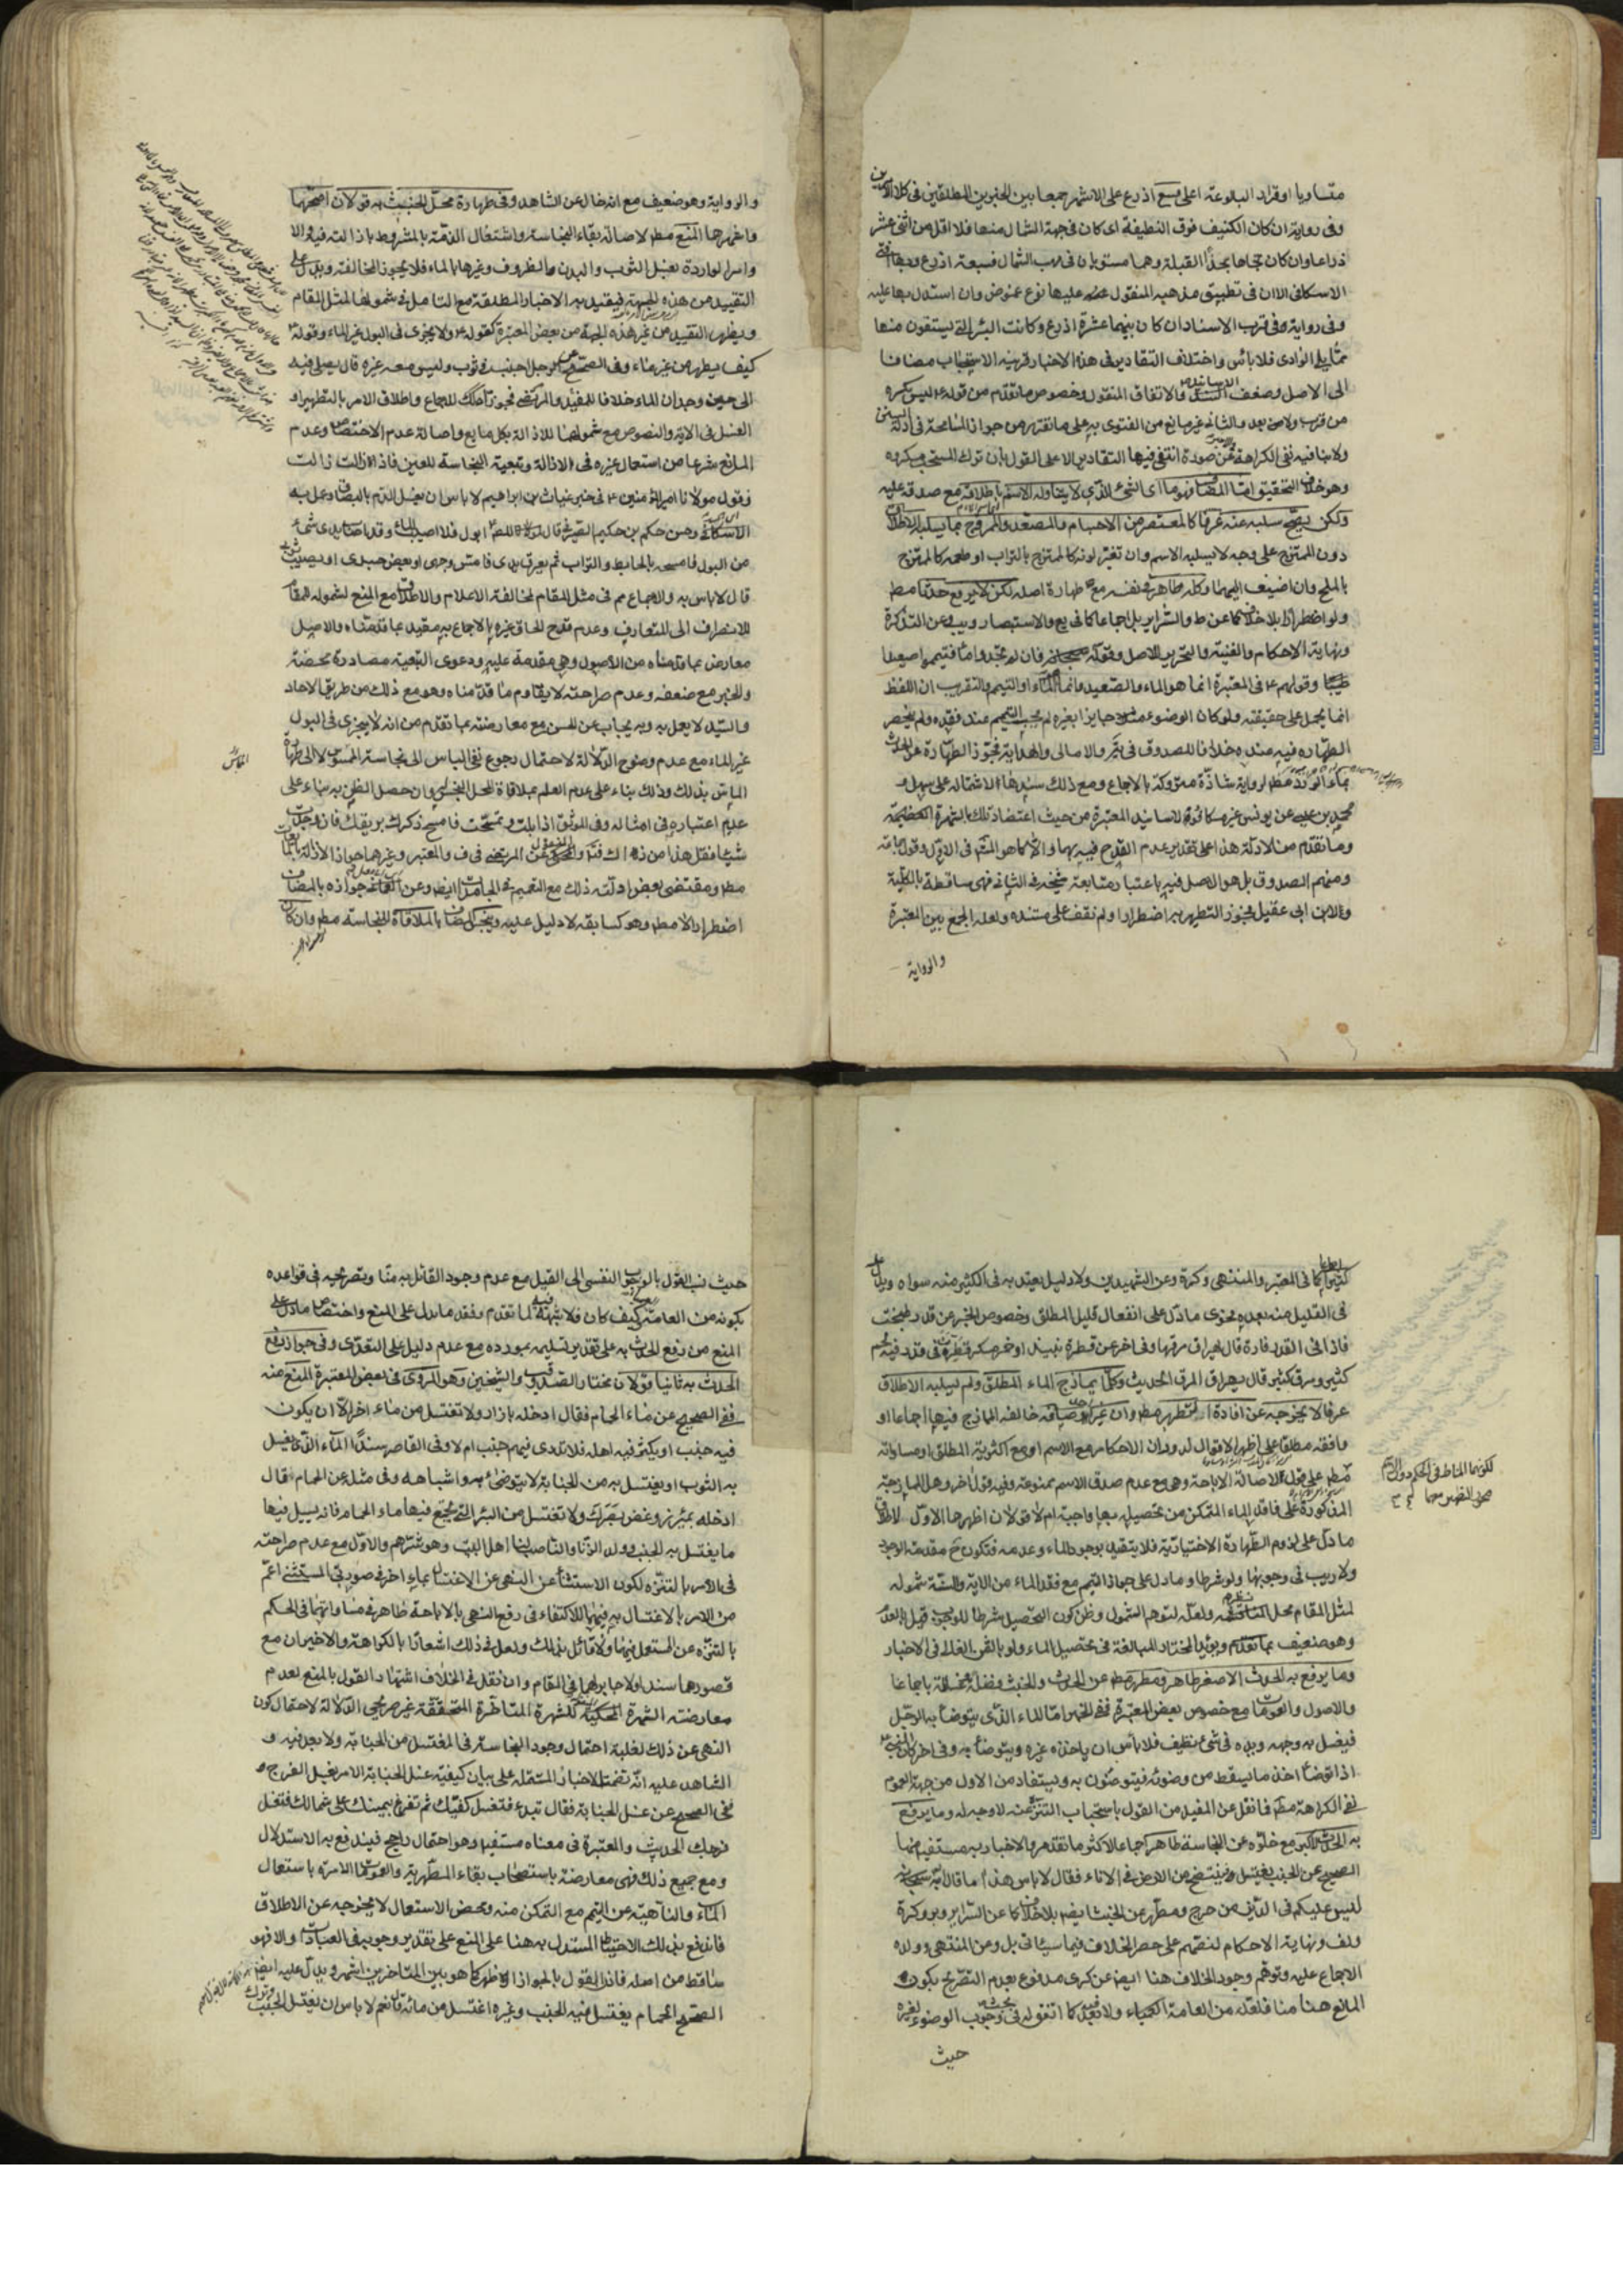 متساويا او قرار البالوعة اعلى فسبع اذرع على الاشهر جمعا بين الخبرين المطلقين في كلا الامرين
وفي رواية ان كان الكنيف فوق النظيفة اى كان في جهة الشمال منها فلا اقل من اثنى عشر
ذراعا وان كان تجاهها بحذاء القبلة وهما مستويان في مهب الشمال فسبعة اذرع
الاسكافى الا ان في تطبيق مذهبه المنقول عليها نوع غموض وان استدل بها عليه
وفي رواية في قرب الاسناد ان كان بينهما عشرة اذرع وكانت البئر التى يستقون منها
مما يلى الوادى فلا باس واختلاف التقادير في هذه الاخبار قرينة الاستحباب مضافا
الى الاصل وضعف الاسانيد والاتفاق المنقول وخصوص ما تقدم من قوله ع ليس يكره
من قرب ولا من بعد والثانى غير مانع من الفتوى به على ما تقرر من جواز المسامحة في ادلة السنن
ولا ينافيه نفى الكراهة عن صورة انتفى فيها التقادير الا على القول بان ترك المستحب مكروه
وهو خلاف التحقيق واما المضاف فهو ما اى الشئ الذى لا يتناوله الاسم باطلاقه مع صدقه عليه
ولكن يصح سلبه عنه عرفا كالمعتصر من الاجسام والمصعد والممزوج بما يسلبه الاطلاق
دون الممتزج على وجه لا يسلبه الاسم وان تغير لونه كالممتزج بالتراب او طعمه كالممتزج
بالملح وان اضيف اليهما وكله طاهر في نفسه مع طهارة اصله لكن لا يرفع حدثا مط
ولو اضطرارا بلا خلاف كما عن ط والسرائر بل اجماعا كما في يع والاستبصار ويب وعن التذكرة
ونهاية الاحكام والغنية والتحرير للاصل وقوله سبحانه فان لم تجدوا ماء فتيمموا صعيدا
طيبا وقولهم ع في المعتبرة انما هو الماء والصعيد وانما الماء او التيمم والتقريب ان اللفظ
انما يحمل على حقيقته ولو كان الوضوء جايزا بغيره لم يجب التيمم عند فقده ولم ينحصر
الطهارة فيه عنده خلافا للصدوق في يه والامالى والهداية فجوز الطهارة عن الحدث
بماء الورد مط لرواية شاذة متروكة بالاجماع ومع ذلك سندها الاشتماله على سهل و
محمد بن عيسى عن يونس غير مكافؤة لاسانيد المعتبرة من حيث اعتضاد تلك بالشهرة العظيمة
وما تقدم من الادلة هذا على تقدير عدم القدح فيه بهما والا كما هو المتهم في الاول وقول جماعة
ومنهم الصدوق بل هو الاصل فيه باعتبار متابعة شيخه في الثانى فهى ساقطة بالكلية
والابن ابى عقيل فجوز التطهر به اضطرارا ولم نقف على مستنده ولعله الجمع بين المعتبرة
والرواية
والرواية وهو ضعيف مع انه خال عن الشاهد وفي طهارة محل الخبث به قولان اصحهما
واشهرهما المنع مط لاصالة بقاء النجاسة واشتغال الذمة بالمشروط بازالته فيه والا
وامر الواردة بغسل الثوب والبدن والظروف وغيرها بالماء فلا يجوز المخالفة ويدل على
التقييد من هذه الجهة فيقيد به الاخبار المطلقة مع التامل في شمولها لمثل المقام
ويظهر التقييد من غير هذه الجهة من بعض المعتبرة كقوله ع ولا يجزى في البول غير الماء وقوله ع
كيف يطهر من غير ماء وفي الصحيح عن رجل اجنب في ثوب وليس معه غيره قال يصلى فيه
الى حين وجدان الماء خلافا للمفيد والمرتضى فجوزا ذلك للاجماع واطلاق الامر بالتطهير او
الغسل في الاية والنصوص مع شمولهما للازالة بكل مايع واصالة عدم الاختصاص وعدم
المانع شرعا من استعمال غيره في الازالة وتبعية النجاسة للعين فاذا زالت زالت
وقول مولانا امير المؤمنين ع في خبر غياث بن ابراهيم لا باس ان يغسل الدم بالبصاق وعمل به
الاسكافى وحسن حكم بن حكيم الصيرفى قال قلت للص ع ابول فلا اصيب الماء وقد اصاب يدى شئ
من البول فامسحه بالحايط والتراب ثم تعرق يدى فامس وجهى او بعض جسدى او يصيب ثوبى
قال لا باس به والاجماع مم في مثل المقام لمخالفة الاعلام والاطلاق مع المنع لشموله للمقام
للانصراف الى المتعارف وعدم قدح الحاق غيره بالاجماع به مقيد بما قدمناه والاصل
معارض بما قدمناه من الاصول وهى مقدمة عليه ودعوى التبعية مصادرة محضة
والخبر مع ضعفه وعدم صراحته لا يقاوم ما قدمناه وهو مع ذلك من طريق الاحاد
والسيد لا يعمل به وبه يجاب عن الحسن مع معارضته بما تقدم من انه لا يجزى في البول
غير الماء مع عدم وضوح الدلالة لاحتمال رجوع نفى الباس الى نجاسة الممسوس لا الى طهارة
الماس بذلك وذلك بناء على عدم العلم بملاقاة المحل النجس له وان حصل الظن به بناء على
عدم اعتباره في امثاله وفي الموثق اذا بلت وتمسحت فامسح ذكرك بريقك فان وجدت
شيئا فقل هذا من ذاك والمحكى عن المرتضى في ف والمعتبر وغيرهما جواز الازالة بالمايعات
مط ومقتضى بعض ادلته ذلك مع التعميم في الجامدات ايض وعن العمانى جوازه بالمضاف
اضطرارا لا مط وهو كسابقه لا دليل عليه وينجس المضاف بالملاقاة للنجاسة مط وان كان
الماس
كثيرا كما في المعتبر والمنتهى وكرة وعن الشهيدين ولا دليل يعتد به في الكثير منه سواه ويدل
في القليل منه بعده فحوى ما دل على انفعال قليل المطلق وخصوص الخبر عن قدر طبخت
فاذا في القدر فارة قال يهراق مرقها وفي اخر عن قطرة نبيذ او خمر مسكر قطرت في قدر فيه لحم
كثير ومرق كثير قال يهراق المرق الحديث وكلما يمازج الماء المطلق ولم يسلبه الاطلاق
عرفا لا يخرجه عن افادة التطهر مط وان غير اوصافه خالفه الممازج فيها اجماعا او
وافقه مطلقا على اظهر الاقوال لدوران الاحكام مع الاسم او مع اكثرية المطلق او مساواته
مط على قول لاصالة الاباحة وهى مع عدم صدق الاسم ممنوعة وفيه قول اخر وهل الممازجة
المذكورة على فاقد الماء المتمكن من تحصيله بها واجبة ام لا قولان اظهرهما الاول لاطلاق
ما دل على لزوم الطهارة الاختيارية فلا يتقيد بوجود الماء وعدمه فتكون ح مقدمة الواجب
ولا ريب في وجوبها ولو شرطا وما دل على جواز التيمم مع فقد الماء من الاية والسنة شموله
لمثل المقام محل نظر ولعله لتوهم الشمول وظن كون التحصيل شرطا للوجوب قيل بالعدم
وهو ضعيف بما تقدم ويؤيد المختار المبالغة في تحصيل الماء ولو بالثمن الغالى في الاخبار
وما يرفع به الحدث الاصغر طاهر ومطهر مط عن الحدث والخبث وفضلة باجماعنا
والاصول والعمومات مع خصوص بعض المعتبرة ففى الخبر واما الماء الذى يتوضأ به الرجل
فيغسل به وجهه ويده في شئ نظيف فلا باس ان ياخذه غيره ويتوضأ به وفي اخر كان النبى ص
اذا توضأ اخذ ما يسقط من وضوئه فيتوضئون به ويستفاد من الاول من جهة العموم
نفى الكراهة مط فما نقل عن المفيد من القول باستحباب التنزه عنه لا وجه له وما يرفع
به الحدث الاكبر مع خلوه عن النجاسة طاهر اجماعا لاكثر ما تقدم والاخبار به مستفيضة منها
الصحيح عن الجنب يغتسل فينتضح من الارض في الاناء فقال لا باس هذا مما قال الله سبحانه
ليس عليكم في الدين من حرج ومطهر عن الخبث ايضا بلا خلاف كما عن السرائر وير وكرة
ولف ونهاية الاحكام لنصهم على حصر الخلاف فيما سيئاتى بل وعن المنتهى وولده
الاجماع عليه وتوهم وجود الخلاف هنا ايض عن كرى مدفوع بعدم التصريح بكون
المانع هنا منا فلعله من العامة العمياء ولا بعد فيه كما اتفق له في بحث وجوب الوضوء لغيره
حيث
لكونها المناط في الحكم دون الاسم
حيث نسب القول بالوجوب النفسى الى القيل مع عدم وجود القائل به منا وتصريحه في قواعده
بكونه من العامة وكيف كان فلا شبهة فيه لما تقدم وفقد ما يدل على المنع واختصاص ما دل على
المنع من رفع الحدث به على تقدير تسليمه بمورده مع عدم دليل على التعدى وفي جواز رفع
الحدث به ثانيا قولان مختار الصدوق والشيخين وهو المروى في بعض المعتبرة المنع منه
ففى الصحيح عن ماء الحمام فقال ادخله بازار ولا تغتسل من ماء اخر الا ان يكون
فيه جنب او يكثر فيه اهله فلا تدرى فيهم جنب ام لا وفي القاصر سندا الماء الذى يغسل
به الثوب او يغتسل به من الجنابة لا يتوضئ به واشباهه وفي مثله عن الحمام قال
ادخله بميزر وغض بصرك ولا تغتسل من البئر التى تجتمع فيها ماء الحمام فانه يسيل فيها
ما يغتسل به الجنب وولد الزنا والناصب لنا اهل البيت وهو شرهم والاول مع عدم صراحته
في الامر بالتنزه لكون الاستثناء عن النهى عن الاغتسال بماء اخر في صورتى المستثنى اعم
من الامر بالاغتسال به فيهما للاكتفاء في رفع النهى بالاباحة ظاهر في مساواتهما في الحكم
بالتنزه عن المستعمل فيهما ولا قائل بذلك ولعل في ذلك اشعارا بالكراهة والاخيران مع
قصورهما سندا ولا جابر لهما في المقام وان نقل في الخلاف اشتهار القول بالمنع لعدم
معارضته الشهرة المحكية للشهرة المتاخرة المتحققة غير صريحى الدلالة لاحتمال كون
النهى عن ذلك لغلبة احتمال وجود النجاسة في المغتسل من الجنابة ولا بعد فيه و
الشاهد عليه انه تضمنت الاخبار المشتملة على بيان كيفية غسل الجنابة الامر بغسل الفرج و
ففى الصحيح عن غسل الجنابة فقال تبدء فتغسل كفيك ثم تفرغ بيمينك على شمالك فتغسل
فرجك الحديث والمعتبرة في معناه مستفيض وهو احتمال راجح فيندفع به الاستدلال
ومع جميع ذلك فهى معارضة باستصحاب بقاء المطهرية والعمومات الامرة باستعمال
الماء والناهية عن التيمم مع التمكن منه ومحض الاستعمال لا يخرجه عن الاطلاق
فاندفع بذلك الاحتياط المستدل به هنا على المنع على تقدير وجوبه في العبادات والا فهو
ساقط من اصله فاذا القول بالجواز اظهر كما هو بين المتاخرين اشهر ويدل عليه ايضا
الصحيح الحمام يغتسل فيه الجنب وغيره اغتسل من مائه قال نعم لا باس ان يغتسل الجنب